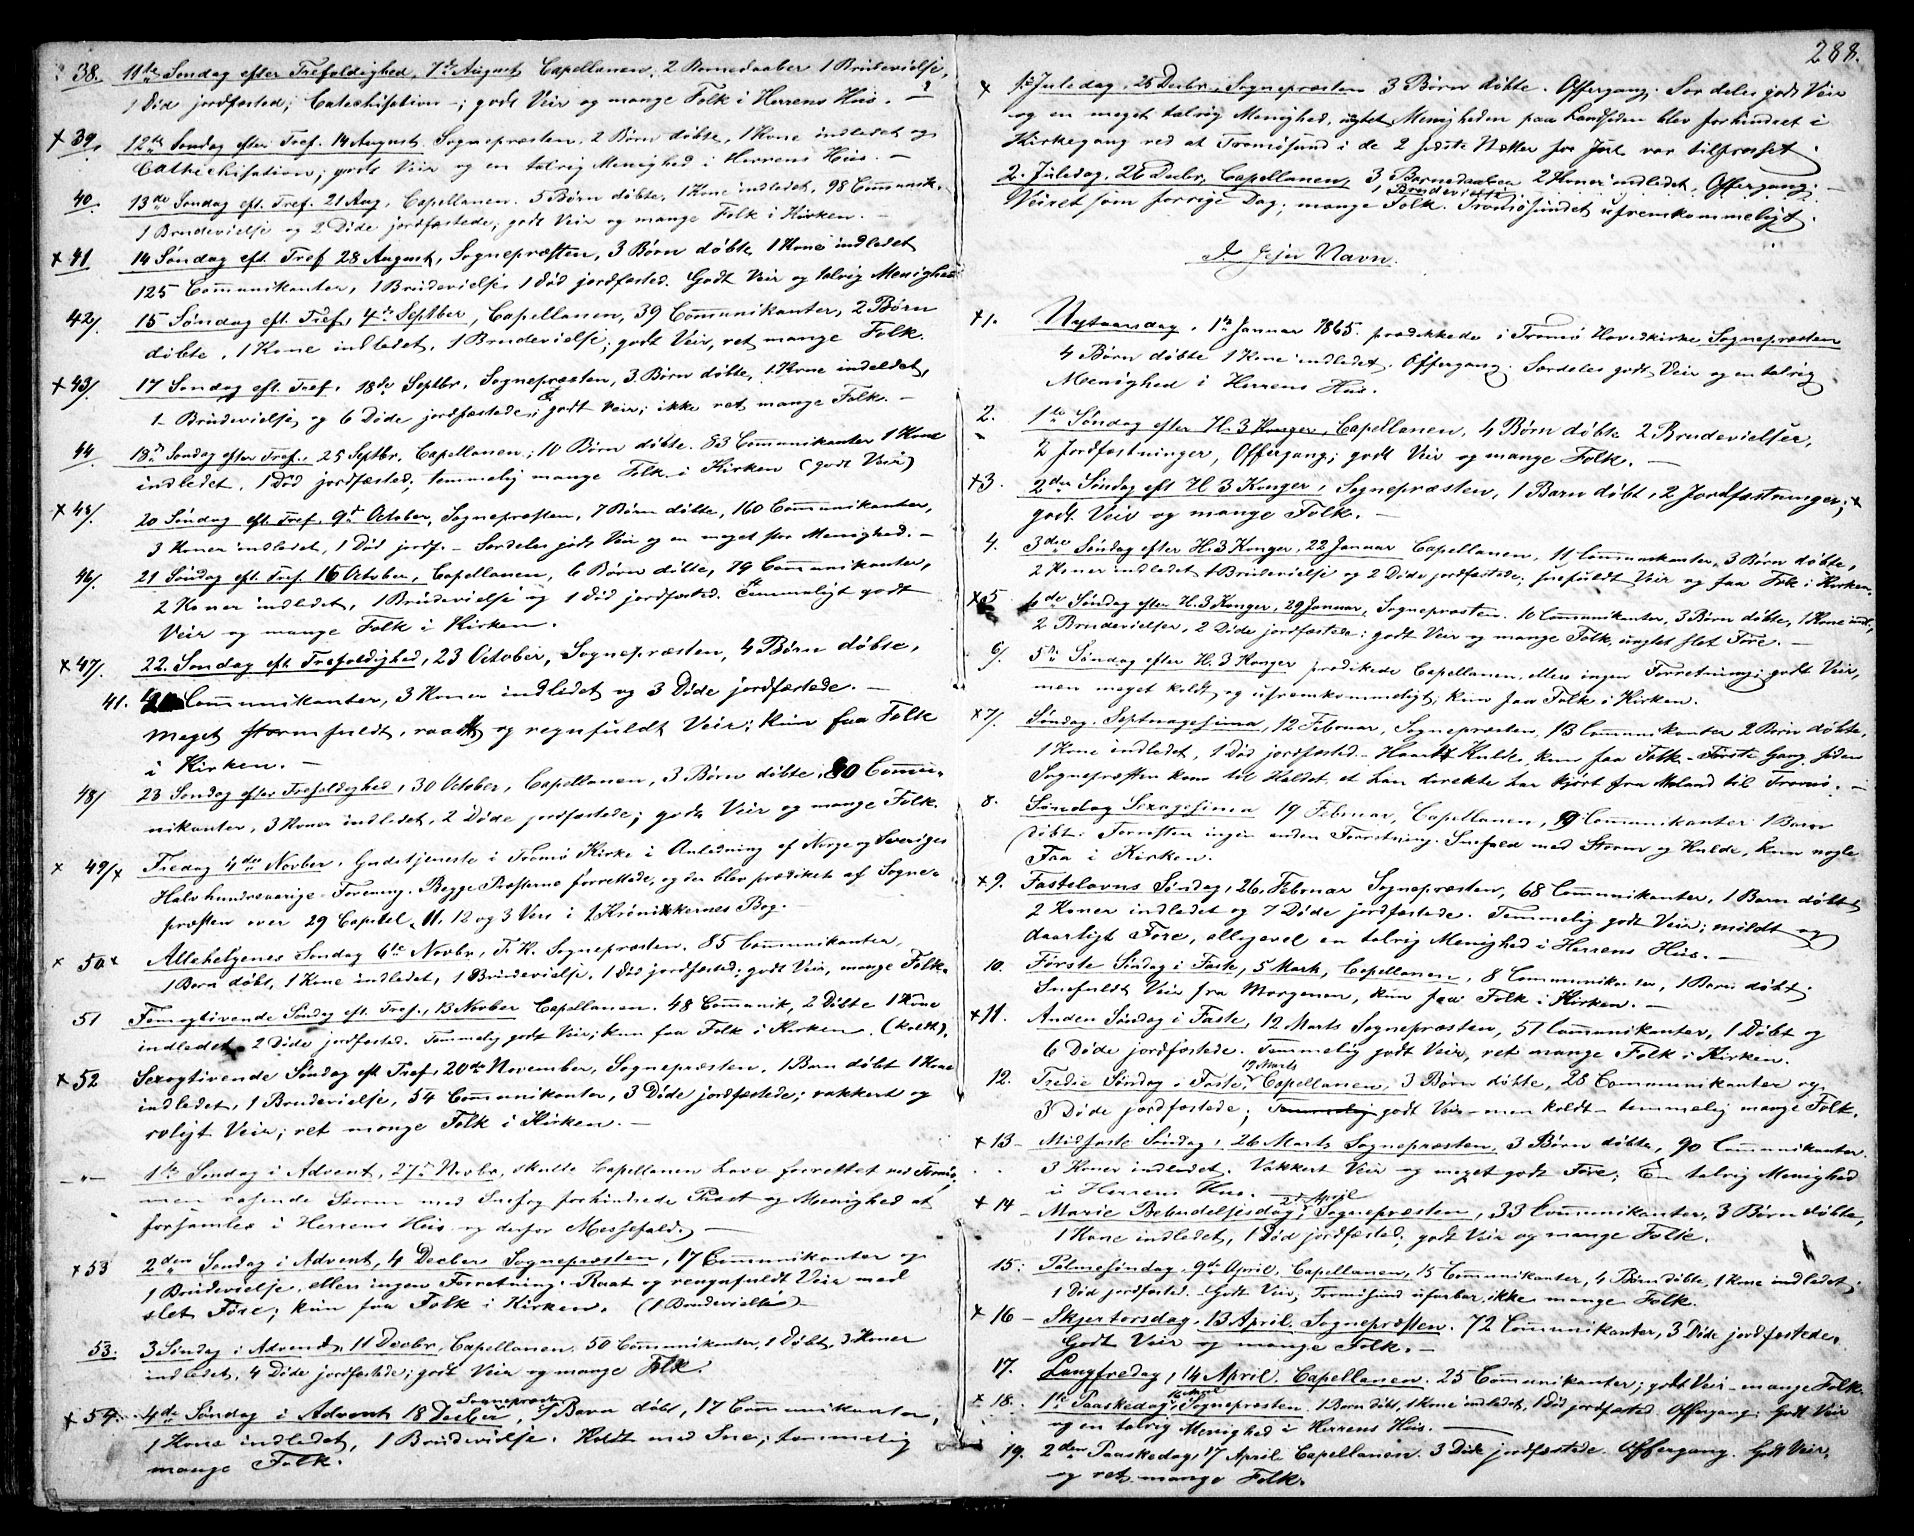 38. 11te Søndag efter Trefoldighed, 7de August Capellanen, 2 Barnedaaber 1 Brudevielse,
1 Død jordfæsted; Catechisation –; godt Veir og mange Folk i Herrens Huus. –
x 39. 12te Søndag efter Tref. 14 August. Sognepræsten, 2 Børn døbte, 1 Kone indledet og
Cathechisation; godt Veir og en talrig Menighed i Herrens Huus. –
40. 13de Søndag eft. Tref. 21 Aug, Capellanen. 5 Børn døbte, 1 Kone indledet, 98 Communik.
1 Brudevielse og 2 Døde jordfæstede, godt Veir og mange Folk i Kirken. –
x 41 14 Søndag eft. Tref 28 August, Sognepræsten, 3 Børn døbte 1 Kone indledet
125 Communikanter, 1 Brudevielse 1 Død jordfæsted. Godt Veir og talrig Menighed
42/. 15 Søndag eft. Tref, 4de Septber, Capellanen, 39 Communikanter, 2 Børn
døbte, 1 Kone indledet, 1 Brudevielse; godt Veir, ret mange Folk.
x 43/. 17 Søndag eft. Tref. 18de Septbr. Sognepræsten, 3 Børn døbte, 1 Kone indledet,
1 Brudevielse og 6 Døde jordfæstede; godt Veir; ikke ret mange Folk. –
44. 18de Søndag efter Tref. 25 Septbr. Capellanen; 10 Børn døbte. 83 Communikanter 1 Kone
indledet. 1 Død jordfæsted; temmelig mange Folk i Kirken (godt Veir)
x 45/. 20 Søndag eft. Tref. 9de October, Sognepræsten, 7 Børn døbte, 160 Communikanter,
3 Koner indledet, 1 Død jordf. – Særdeles godt Veir og en meget stor Menighed. –
46/. 21 Søndag eft. Tref. 16 October, Capellanen, 6 Børn døbte, 74 Communikanter,
2 Koner indledet, 1 Brudevielse og 1 Død jordfæsted. Temmeligt godt
Veir og mange Folk i Kirken.
x 47/. 22. Søndag eft. Trefoldighed, 23 October, Sognepræsten, 4 Børn døbte,
41. Communikanter, 3 Koner indledet og 3 Døde jordfæstede. –
Meget stormfuldt, raat og regnfuldt Veir; kun faa Folk
i Kirken. –
48/ 23 Søndag efter Trefoldighed, 30 October, Capellanen, 3 Børn døbte, 80 Commu-
nikanter, 3 Koner indledet, 2 Døde jordfæstede; godt Veir og mange Folk.
x 49/x Fredag 4de Novber, Gudstjeneste i Tromø Kirke i Anledning af Norge og Sveriges
Halvhundredaarige Forening. Begge Præsterne forrettede, og der blev prædiket af Sogne-
præsten over 29 Capitel, 11, 12 og 3 Vers i 1 Krønikkernes Bog. –
x 50x Allehelgenes Søndag 6te Novbr, T. K. Sognepræsten. 85 Communikanter,
1 Barn døbt, 1 Kone indledet, 1 Brudevielse, 1 Død jordfæsted; godt Veir, mange Folk.
51 Femogtivende Søndag eft. Tref., 13 Novber Capellanen. 48 Communik, 2 Døbte 1 Kone
indledet 2 Døde jordfæsted. Temmelig godt Veir; kun faa Folk i Kirken. (koldt).
x 52 Sexogtivende Søndag eft Tref, 20de November, Sognepræsten, 1 Barn døbt 1 Kone
indledet, 1 Brudevielse, 54 Communikanter, 3 Døde jordfæstede; vakkert og
roligt Veir; ret mange Folk i Kirken. –
–"– 1ste Søndag i Advent, 27de Novbr, skulle Capellanen have forrettet ved Tromø,
men rasende Storm med Snefog forhindrede Præst og Menighed at
forsamles i Herrens Huus og derfor Messefald. –
x 53 2den Søndag i Advent, 4 Decber Sognepræsten, 17 Communikanter og
1 Brudevielse, ellers ingen Forretning. Raat og regnfuldt Veir med
slet Føre; kun faa Folk i Kirken. (1 Brudevielse) –
53. 3 Søndag i Advent, 11 Decbr, Capellanen. 50 Communikanter, 1 Døbt, 3 Koner
indledet, 4 Døde jordfæstede; godt Veir og mange Folk.
x 54. 4de Søndag i Advent 18 Decber, Sognepræsten 1 Barn døbt, 17 Communikanter,
1 Kone indledet, 1 Brudevielse. Koldt med Sne; temmelig
mange Folk.
288.
x 1ste Juledag, 25 Decbr, Sognepræsten 3 Børn døbte. Offergang. Særdeles godt Veir
og en meget talrig Menighed, uagtet Menigheden paa Landsiden blev forhindret i
Kirkegang ved at Tromøsund i de 2 sidste Nætter før Jul var tilfrosset.
2. Juledag, 26 Decbr, Capellanen, 3 Barnedaaber 1 Brudevielse 2 Koner indledet. Offergang.
Veiret som forrige Dag; mange Folk. Tromøsundet ufremkommeligt.
I Jesu Navn.
x 1. Nytaarsdag, 1ste Januar 1865 prædikkede i Tromø Hovedkirke Sognepræsten
4 Børn døbte 1 Kone indledet. Offergang. Særdeles godt Veir og en talrig
Menighed i Herrens Huus.
2. 1ste Søndag efter H. 3 Konger, Capellanen, 4 Børn døbte 2 Brudevielser,
2 Jordfæstninger, Offergang; godt Veir og mange Folk. –
x 3. 2den Søndag eft H. 3 Konger, Sognepræsten, 1 Barn døbt, 2 Jordfæstninger;
godt Veir og mange Folk. –
4. 3die Søndag efter H. 3 Konger, 22 Januar Capellanen, 11 Communikanter, 3 Børn døbte,
2 Koner indledet 1 Brudevielse og 2 Døde jordfæstede; snefuldt Veir og faa Folk i Kirken.
x 5 4de Søndag efter H. 3 Konger, 29 Januar, Sognepræsten. 10 Communikanter, 3 Børn døbte, 1 Kone indl.,
2 Brudevielser, 2 Døde jordfæstede; godt Veir og mange Folk, uagtet slet Føre. –
6/. 5te Søndag efter H. 3 Konger prædikede Capellanen, ellers ingen Forretning; godt Veir,
men meget koldt og ufremkommeligt; kun faa Folk i Kirken.
x 7/. Søndag Septuagesima, 12 Februar, Sognepræsten, 13 Communikanter 2 Børn døbte,
1 Kone indledet, 1 Død jordfæsted. Haard Kulde, kun faa Folk. – Første Gang siden
Sognepræsten kom til Kaldet, at han directe har kjørt fra Moland til Tromø. –
8. Søndag Sexagesima 19 Februar, Capellanen, 9 Communikanter 1 Barn
døbt. Forresten ingen anden Forretning. Snefald med Storm og Kulde, kun nogle
Faa i Kirken.
x 9. Fastelavns Søndag, 26 Februar Sognepræsten, 68 Communikanter, 1 Barn døbt
2 Koner indledet og 7 Døde jordfæstede. Temmelig godt Veir; mildt og
daarligt Føre, alligevel en talrig Menighed i Herrens Huus. –
10. Første Søndag i Faste, 5 Marts, Capellanen, 8 Communikanter, 1 Barn døbt.
Snefuldt Veir fra Morgenen, kun faa Folk i Kirken. –
x 11. Anden Søndag i Faste, 12 Marts Sognepræsten, 51 Communikanter, 1 Døbt og
6 Døde jordfæstede. Temmelig godt Veir, ret mange Folk i Kirken.
12. Tredie Søndag i Faste, 19 Marts Capellanen, 3 Børn døbte, 28 Communikanter og
3 Døde jordfæstede; temmelig godt Veir – men koldt – temmelig mange Folk.
x 13 – Midfaste Søndag, 26 Marts Sognepræsten, 3 Børn døbte, 90 Communikanter
3 Koner indledet. Vakkert Veir og meget godt Føre; En talrig Menighed
i Herrens Huus.
x 14 – Mariæ Bebudelsesdag, 2den April Sognepræsten, 33 Communikanter, 3 Børn døbte,
1 Kone indledet, 1 Død jordfæsted; godt Veir og mange Folk.
15. Palmesøndag, 9de April, Capellanen, 15 Communikanter, 4 Børn døbte, 1 Kone indledet;
1 Død jordfæsted. Godt Veir, Tromøsund ufarbar, ikke mange Folk.
x 16 – Skjertorsdag, 13 April, Sognepræsten. 72 Communikanter, 3 Døde jordfæstede.
Godt Veir og mange Folk. –
17. Langfredag, 14 April. Capellanen. 25 Communikanter; godt Veir – mange Folk.
x 18. 1ste Paaskedag, 16 April Sognepræsten. 1 Barn døbt, 1 Kone indledet, 1 Død jordfæsted. Offergang. Godt Veir
og en talrig Menighed i Herrens Huus.
19. 2den Paaskedag, 17 April Capellanen. 3 Døde jordfæstede. Offergang. Godt Veir,
og ret mange Folk.